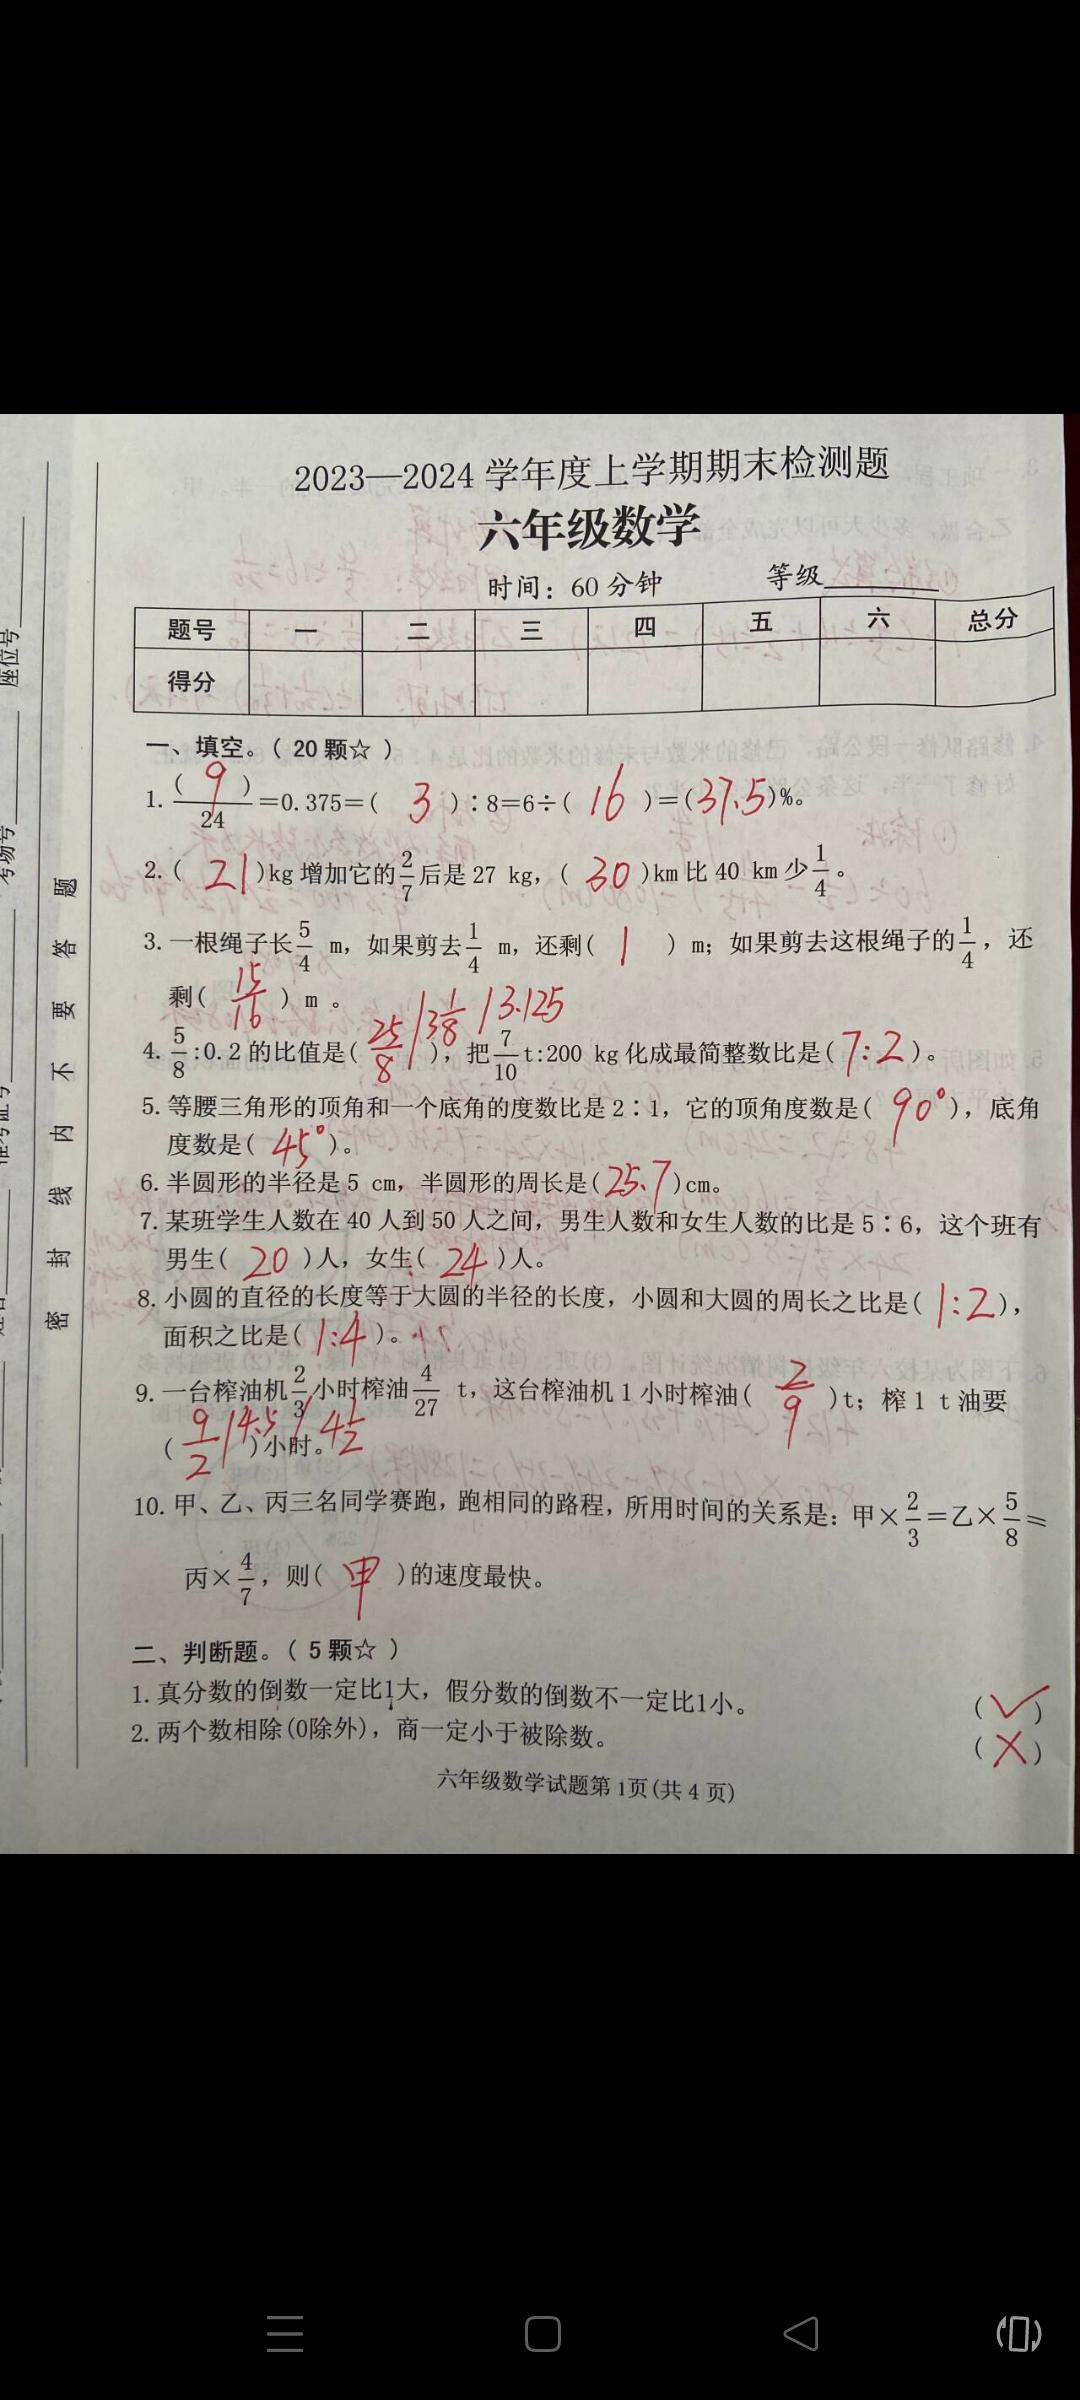 2023—2024 学年度上学期期末检测题
六年级数学
时间：60 分钟 等级
题号 一 二 三 四 五 六 总分
得分
一、填空。（ 20 颗☆ ）
1. (9)/24=0.375=( 3 )∶8=6÷( 16 )=(37.5)%。
2. ( 21 )kg 增加它的2/7后是 27 kg，( 30 )km 比 40 km 少1/4。
3. 一根绳子长5/4 m，如果剪去1/4 m，还剩( 1 ) m；如果剪去这根绳子的1/4，还
剩( 15/16 ) m 。
4. 5/8:0.2 的比值是( 25/8 / 3 1/8 / 3.125 )，把7/10t:200 kg 化成最简整数比是( 7:2 )。
5. 等腰三角形的顶角和一个底角的度数比是 2∶1，它的顶角度数是( 90° )，底角
度数是( 45° )。
6. 半圆形的半径是 5 cm，半圆形的周长是( 25.7 )cm。
7. 某班学生人数在 40 人到 50 人之间，男生人数和女生人数的比是 5∶6，这个班有
男生( 20 )人，女生( 24 )人。
8. 小圆的直径的长度等于大圆的半径的长度，小圆和大圆的周长之比是( 1:2 )，
面积之比是( 1:4 )。
9. 一台榨油机2/3小时榨油4/27 t，这台榨油机 1 小时榨油( 2/9 )t；榨 1 t 油要
( 9/2 / 4.5 / 4 1/2 )小时。
10. 甲、乙、丙三名同学赛跑，跑相同的路程，所用时间的关系是：甲×2/3=乙×5/8=
丙×4/7，则( 甲 )的速度最快。
二、判断题。（ 5 颗☆ ）
1. 真分数的倒数一定比1大，假分数的倒数不一定比1小。 (✓)
2. 两个数相除(0除外)，商一定小于被除数。 (×)
六年级数学试题第 1页(共 4 页)
密 封 线 内 不 要 答 题
座位号
考场号